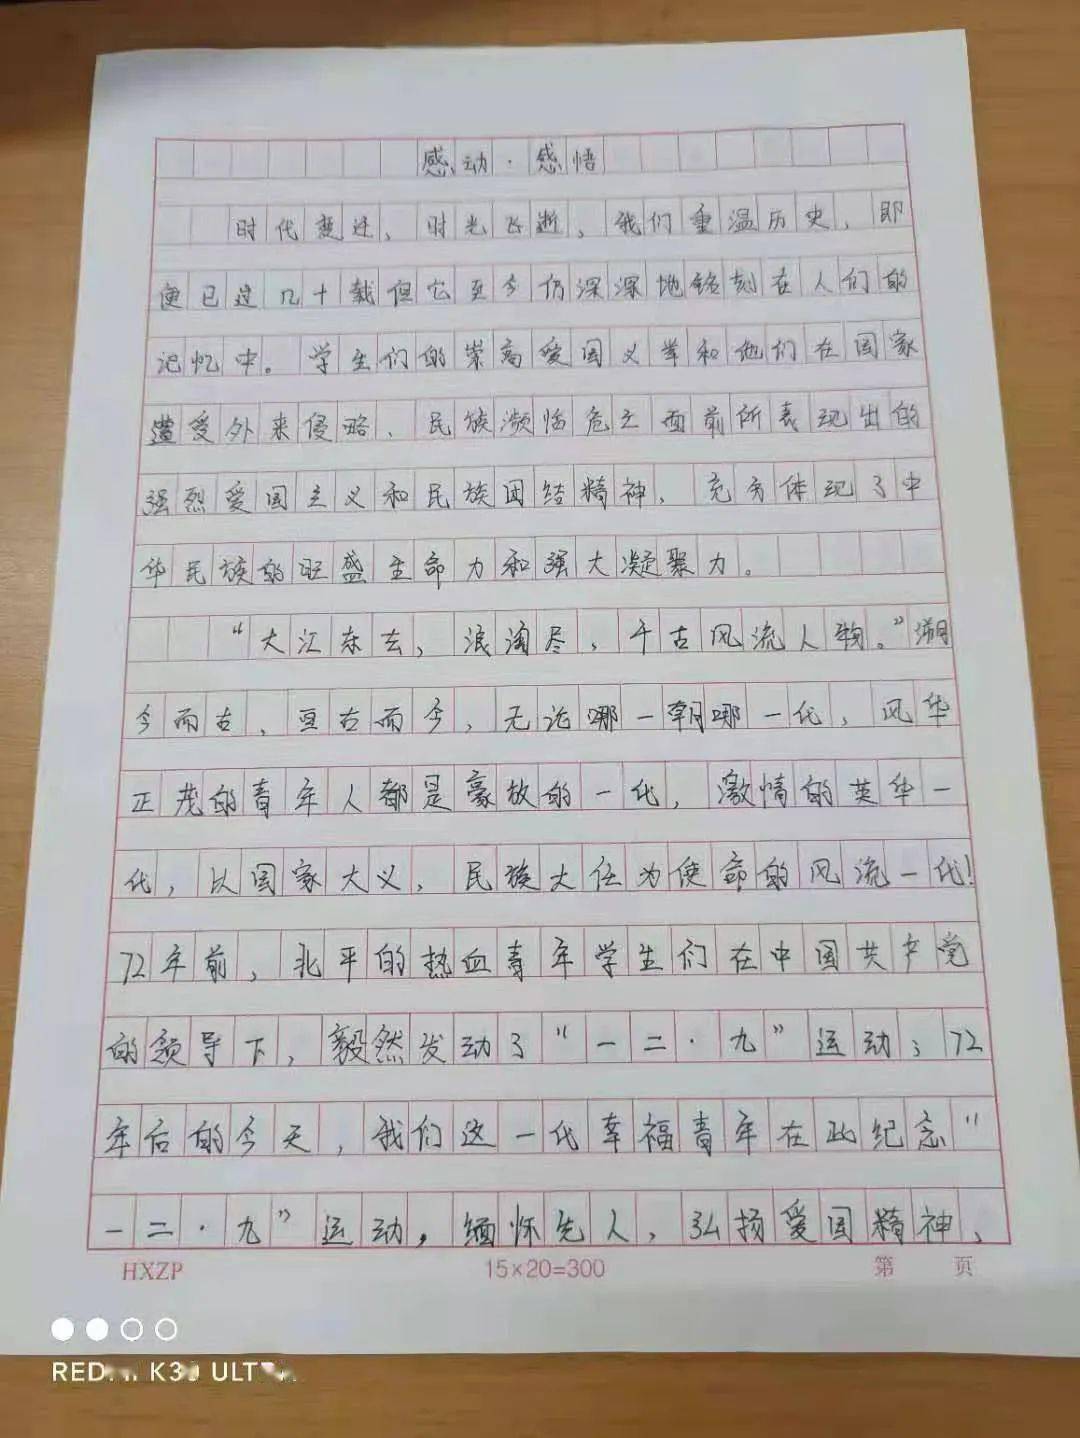 感动·感悟
时代变迁，时光飞逝，我们重温历史，即
便已过几十载但它至今仍深深地铭刻在人们的
记忆中。学生们的崇高爱国义举和他们在国家
遭受外来侵略、民族濒临危亡面前所表现出的
强烈爱国主义和民族团结精神，充分体现了中
华民族的旺盛生命力和强大凝聚力。
“大江东去，浪淘尽，千古风流人物。”溯
今而古，亘古而今，无论哪一朝哪一代，风华
正茂的青年人都是豪放的一代，激情的英华一
代，以国家大义，民族大任为使命的风流一代！
72年前，北平的热血青年学生们在中国共产党
的领导下，毅然发动了“一二·九”运动；72
年后的今天，我们这一代幸福青年在此纪念“
一二·九”运动，缅怀先人，弘扬爱国精神，
HXZP 15×20=300 第 页
K30